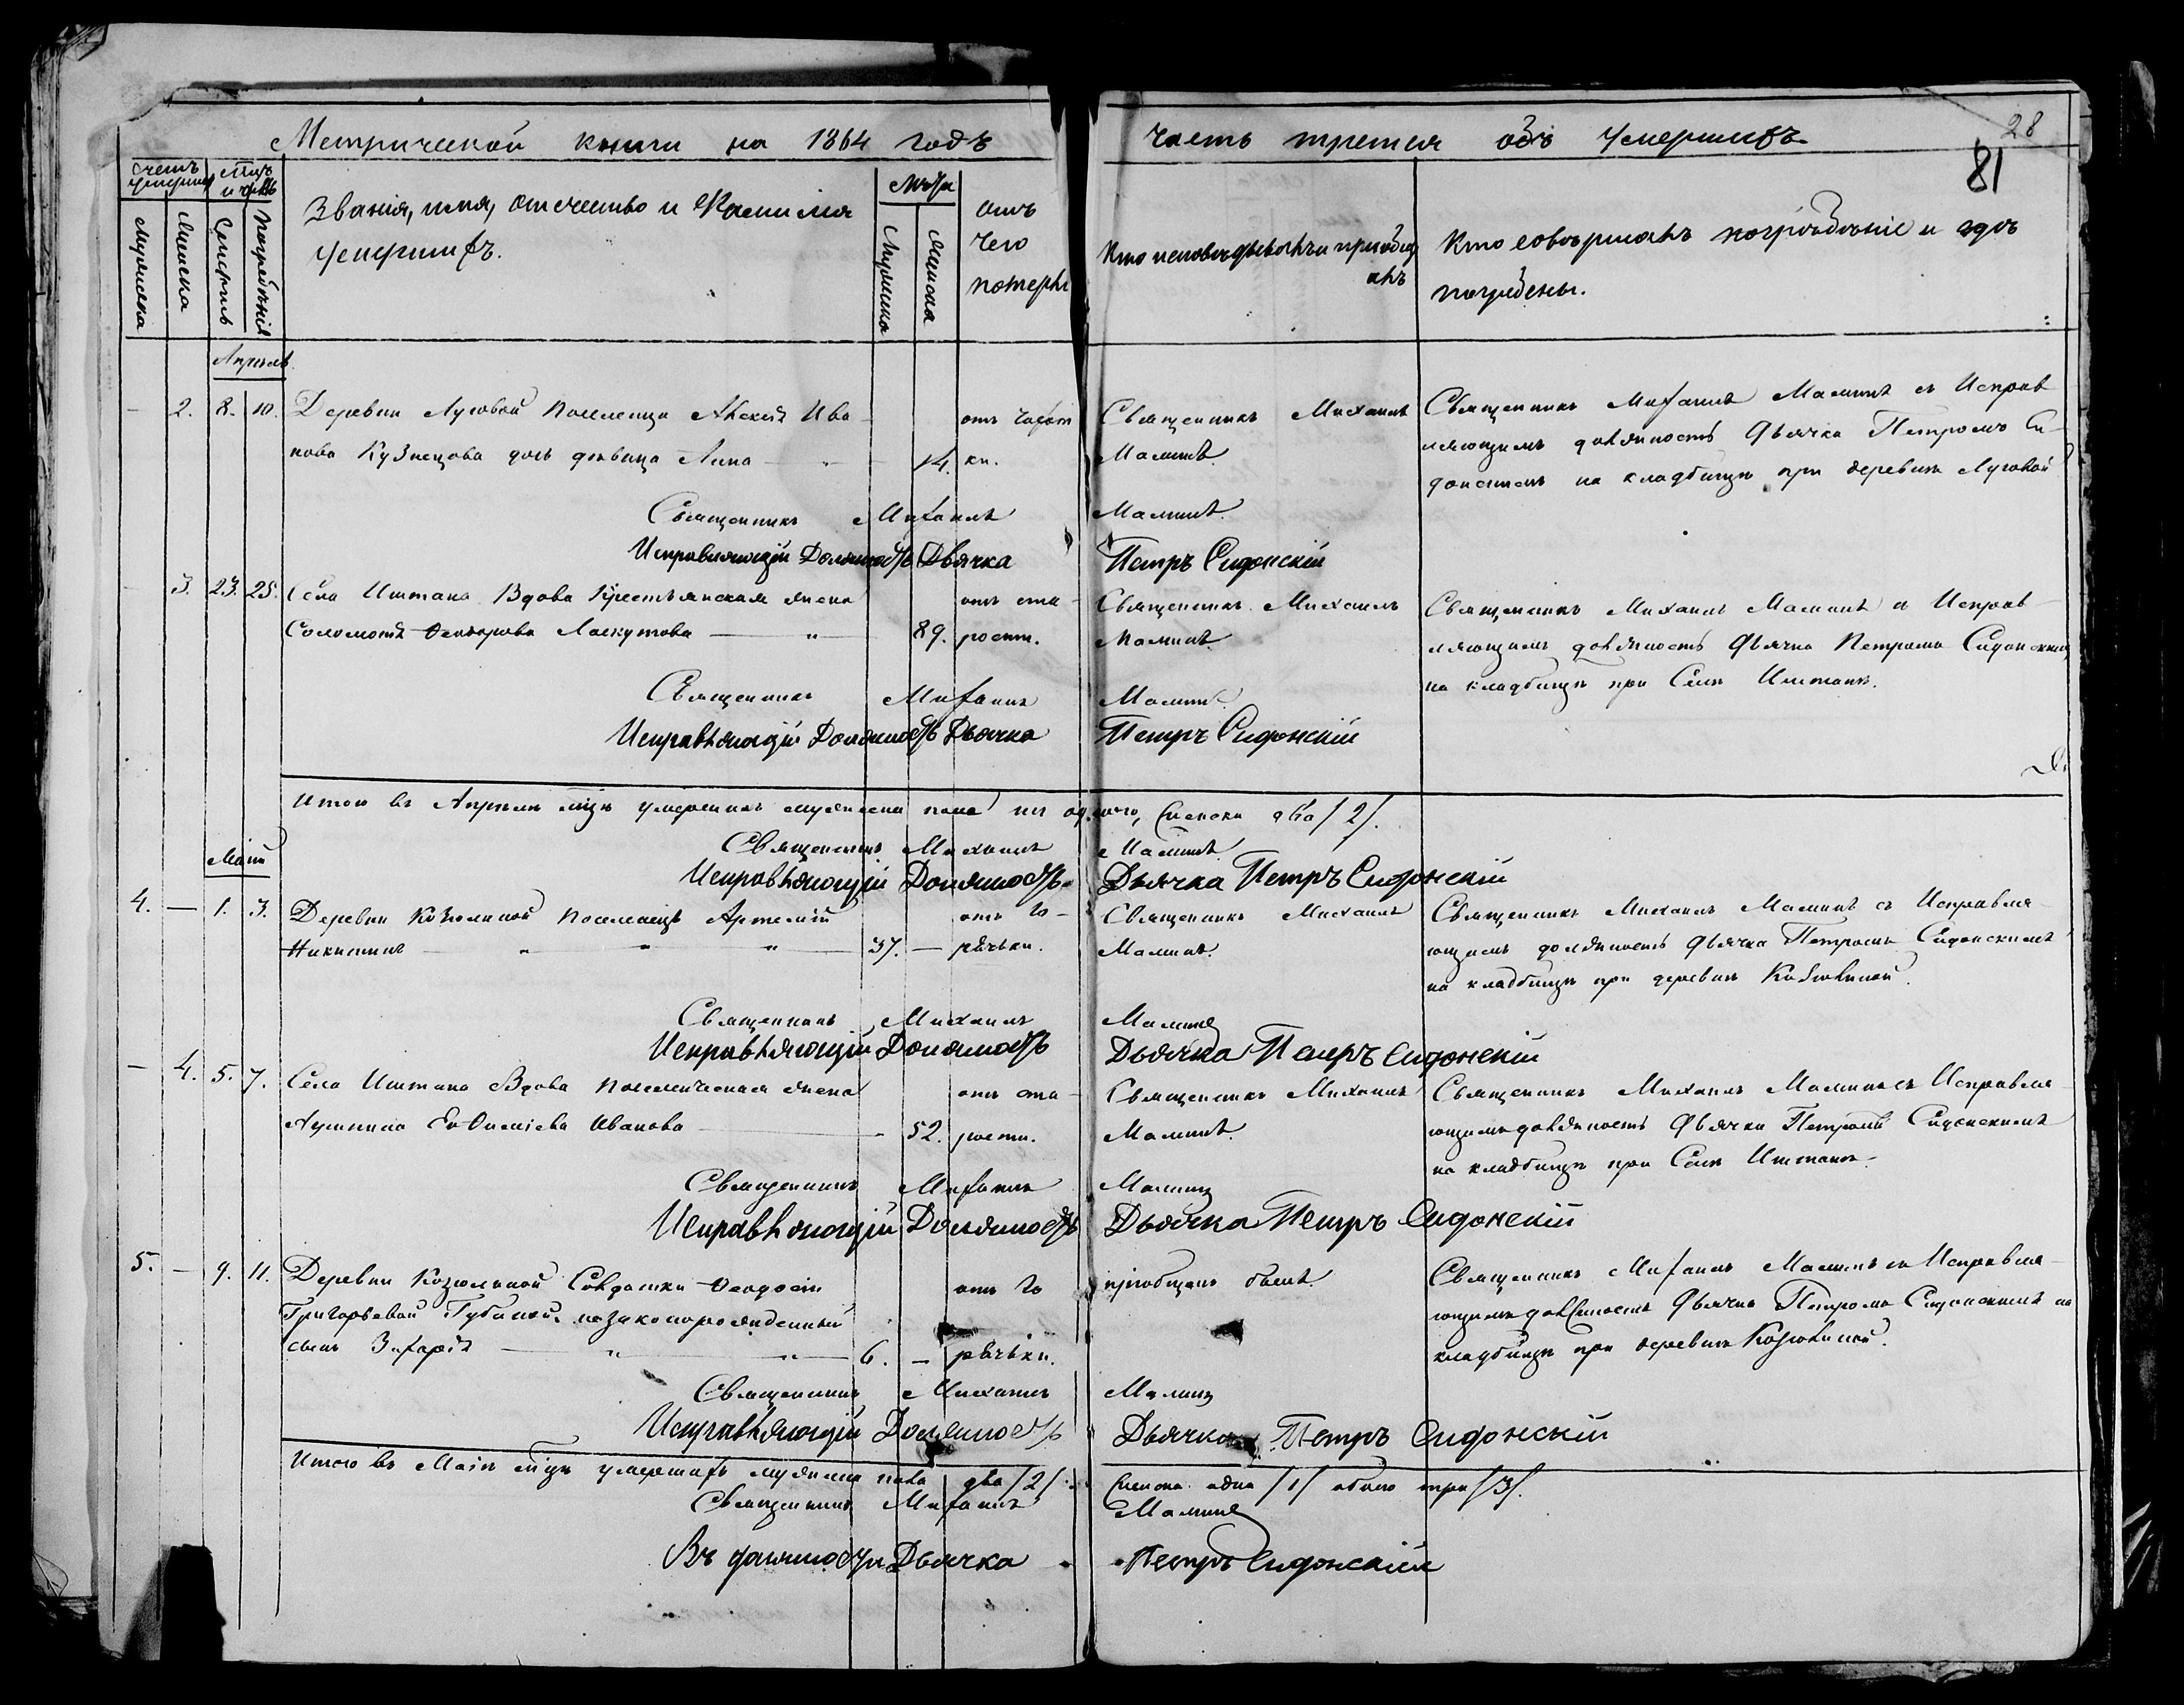 Метрической книги на 1864 годъ
часть третья объ умершихъ.
28
81
Счетъ умершихъ
Мѣсяцъ и день
Званія, имя, отечество и Фамилія
умершихъ.
Лѣта
отъ
чего
померъ
Кто исповѣдывалъ и пріобщ
алъ
Кто совершалъ погребеніе и гдѣ
погребены.
Мужеска
Женска
Смерти
Погребенія
Мужеска
Женска
Апрѣль.
— 2. 8. 10. Деревни Луговой поселенца Алексѣя Ива-
нова Кузнецова дочь дѣвица Анна — „ — 14.
отъ чахот
ки.
Священникъ Михаилъ
Малинъ.
Священникъ Михаилъ Малинъ съ Исправ
ляющимъ должность Дьячка Петромъ Си-
донскимъ на кладбищѣ при деревнѣ Луговой
Священникъ Михаилъ Малинъ.
Исправляющій Должность Дьячка Петръ Сидонскій
— 3. 23. 25. Села Иштана Вдова Крестьянская жена
Соломонія Ѳеодорова Лоскутова — „ — 89.
отъ ста-
рости.
Священникъ Михаилъ
Малинъ.
Священникъ Михаилъ Малинъ съ Исправ-
ляющимъ должность Дьячка Петромъ Сидонскимъ
на кладбищѣ при Селѣ Иштанѣ.
Священникъ Михаилъ Малинъ.
Исправляющій Должность Дьячка Петръ Сидонскій
Итого въ Апрѣлѣ мцѣ умершихъ мужеска пола ни одного, Женска два /2/.
Священникъ Михаилъ Малинъ.
Исправляющій Должность Дьячка Петръ Сидонскій
Маій
4. — 1. 3. Деревни Козюлиной поселенецъ Артемій
Никитинъ — „ „ „ — 37. —
отъ го-
рячьки.
Священникъ Михаилъ
Малинъ.
Священникъ Михаилъ Малинъ съ Исправля-
ющимъ должность Дьячка Петромъ Сидонскимъ
на кладбищѣ при деревнѣ Козюлиной.
Священникъ Михаилъ Малинъ
Исправляющій Должность Дьячка Петръ Сидонскій
— 4. 5. 7. Села Иштана Вдова поселенческая жена
Евѳиміева Иванова — 52.
отъ ста-
рости.
Священникъ Михаилъ
Малинъ.
Священникъ Михаилъ Малинъ съ Исправля-
ющимъ должность Дьячка Петромъ Сидонскимъ
на кладбищѣ при Селѣ Иштанѣ.
Священникъ Михаилъ Малинъ
Исправляющій Должность Дьячка Петръ Сидонскій
5. — 9. 11. Деревни Козюлиной Солдатки Ѳеодосіи
Григорьевой Губиной незаконорожденный
сынъ Захарій — „ — „ — 6. —
отъ го
рячьки.
пріобщенъ былъ.
Священникъ Михаилъ Малинъ съ Исправля-
ющимъ должность Дьячка Петромъ Сидонскимъ на
кладбищѣ при деревнѣ Козюлиной.
Священникъ Михаилъ Малинъ
Исправляющій Должность Дьячка Петръ Сидонскій
Итого въ Маіѣ мцѣ умершихъ мужеска пола два /2/. Женска одна /1/ обоего три /3/.
Священникъ Михаилъ Малинъ
Въ должности Дьячка Петръ Сидонскій